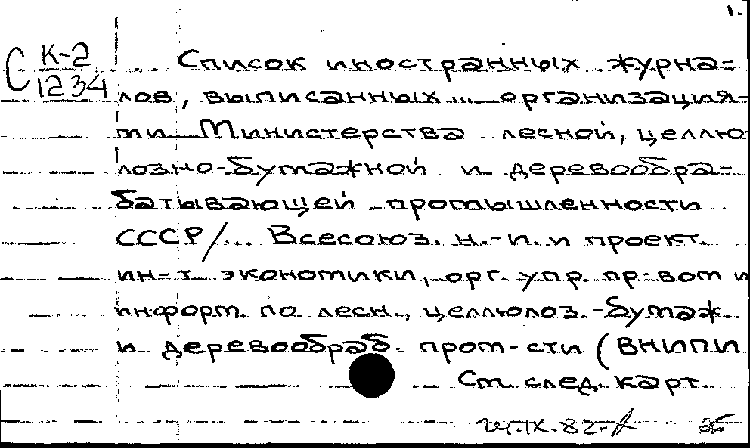 1.
С К-2/1234
Список иностранных журна=
лов, выписанных ... организация-
ми Министерства лесной, целлю
лозно-бумажной и деревообра=
батывающей промышленности
СССР/... Всесоюз. н.-и. и проект.
ин-т экономики, орг. упр. пр-вом и
информ. по лесн., целлюлоз.-бумаж.
и деревообраб. пром-сти (ВНИПИ
См. след. карт.
IX.82